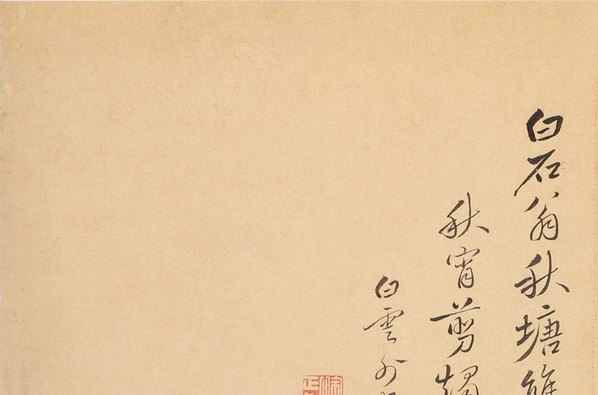 白石翁秋塘
秋宵剪燭
白雲外